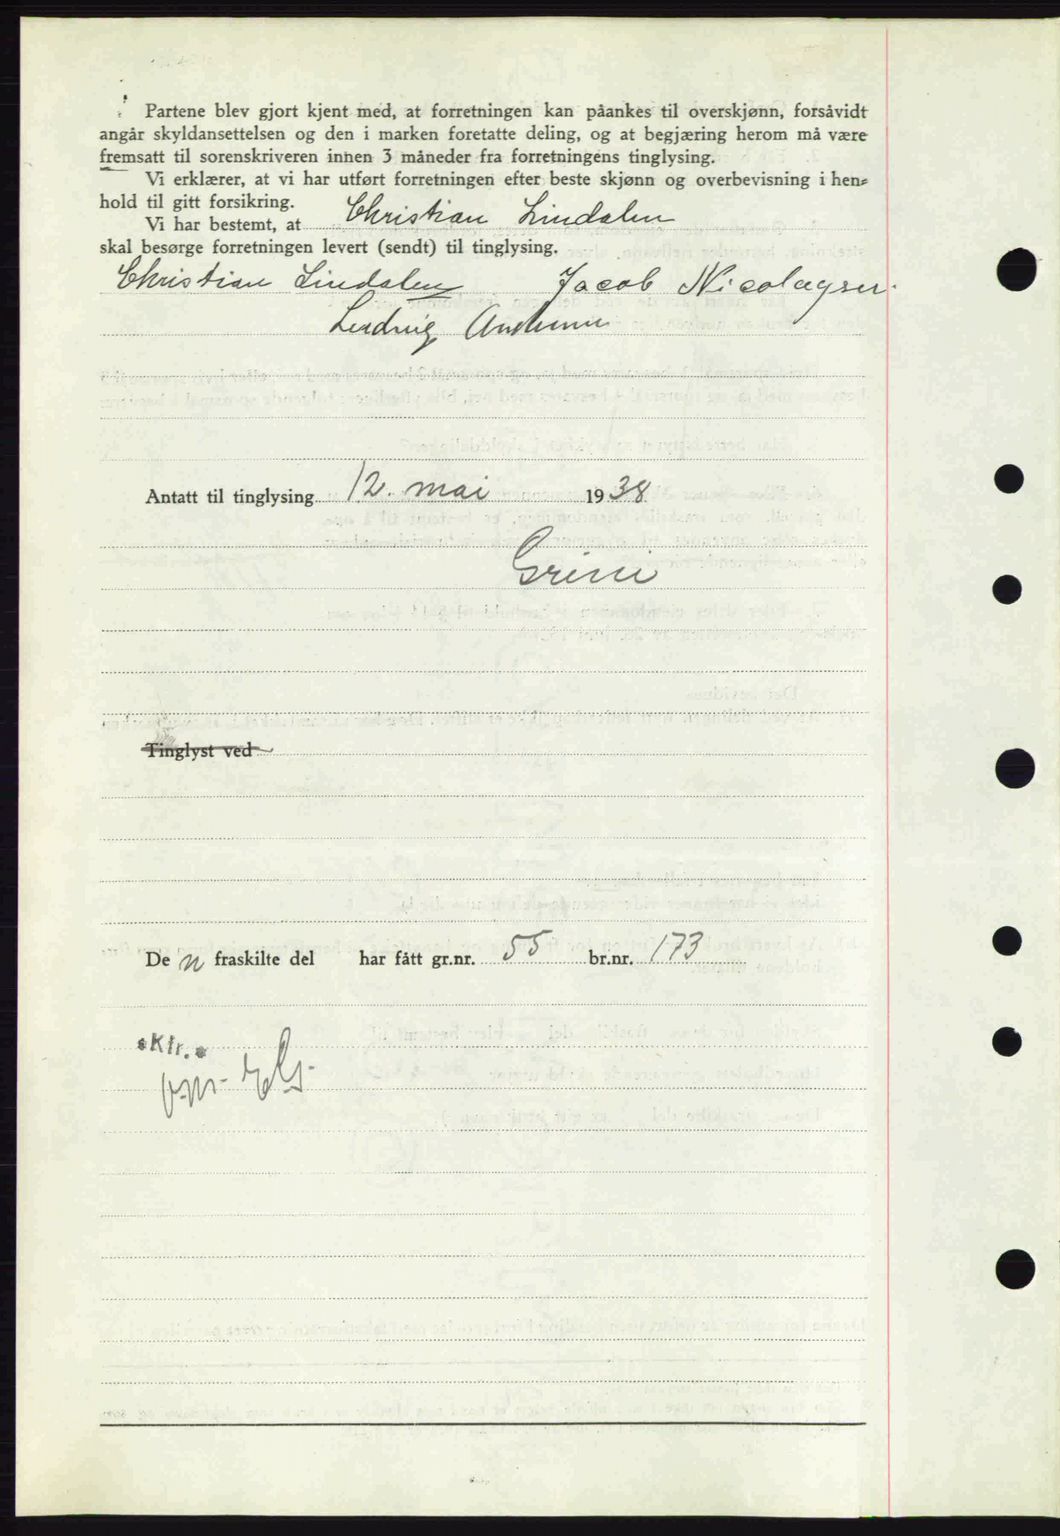 Partene blev gjort kjent med, at forretningen kan påankes til overskjønn, forsåvidt
angår skyldansettelsen og den i marken foretatte deling, og at begjæring herom må være
fremsatt til sorenskriveren innen 3 måneder fra forretningens tinglysing.
Vi erklærer, at vi har utført forretningen efter beste skjønn og overbevisning i hen=
hold til gitt forsikring.
Vi har bestemt, at Christian Lindalen
skal besørge forretningen levert (sendt) til tinglysing.
Christian Lindalen Jacob Nicolaysen.
Ludvig
Antatt til tinglysing 12. mai 1938
Grini
Tinglyst ved
De n fraskilte del har fått gr.nr. 55 br.nr. 173
*Ktr.*